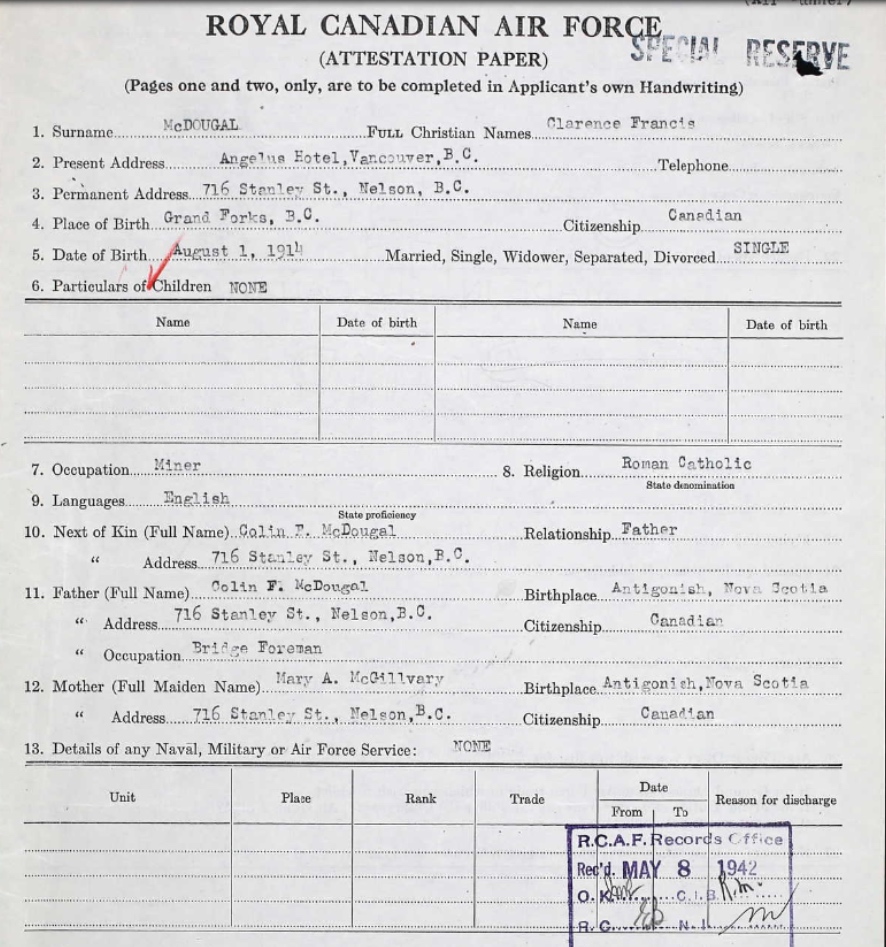 ROYAL CANADIAN AIR FORCE
SPECIAL RESERVE
(ATTESTATION PAPER)
(Pages one and two, only, are to be completed in Applicant's own Handwriting)
1. Surname McDOUGAL FULL Christian Names Clarence Francis
2. Present Address Angelus Hotel,Vancouver,B.C. Telephone
3. Permanent Address 716 Stanley St., Nelson, B.C.
4. Place of Birth Grand Forks, B.C. Citizenship Canadian
5. Date of Birth August 1, 1914 Married, Single, Widower, Separated, Divorced SINGLE
6. Particulars of Children NONE
Name Date of birth Name Date of birth
7. Occupation Miner 8. Religion Roman Catholic
State denomination
9. Languages English
State proficiency
10. Next of Kin (Full Name) Colin F. McDougal Relationship Father
" Address 716 Stanley St., Nelson,B.C.
11. Father (Full Name) Colin F. McDougal Birthplace Antigonish, Nova Scotia
" Address 716 Stanley St., Nelson,B.C. Citizenship Canadian
" Occupation Bridge Foreman
12. Mother (Full Maiden Name) Mary A. McGillvary Birthplace Antigonish,Nova Scotia
" Address 716 Stanley St., Nelson,B.C. Citizenship Canadian
13. Details of any Naval, Military or Air Force Service: NONE
Unit Place Rank Trade Date Reason for discharge
From To
R.C.A.F. Records Office
Rec'd. MAY 8 1942
O.K. C.I.B. R.M.
R.C. N.I.